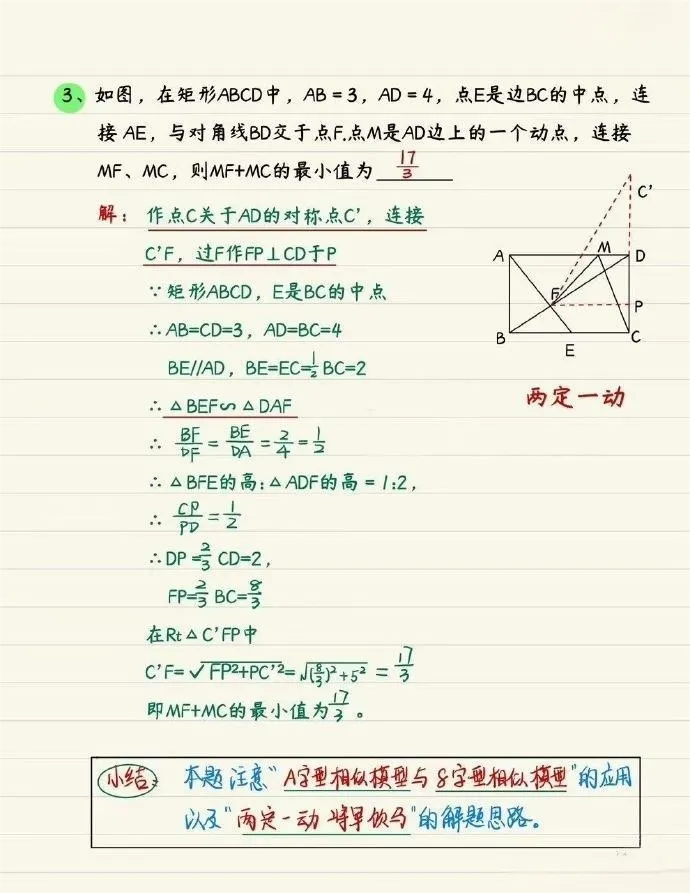 3、如图，在矩形ABCD中，AB=3，AD=4，点E是边BC的中点，连
接 AE，与对角线BD交于点F.点M是AD边上的一个动点，连接
MF、MC，则MF+MC的最小值为 17/3
解：作点C关于AD的对称点C'，连接
C'F，过F作FP⊥CD于P
∵矩形ABCD，E是BC的中点
∴AB=CD=3，AD=BC=4
BE//AD，BE=EC=1/2 BC=2
∴△BEF∽△DAF
∴ BF/DF = BE/DA = 2/4 = 1/2
∴△BFE的高:△ADF的高 = 1:2，
∴ CP/PD = 1/2
∴DP=2/3 CD=2，
FP=2/3 BC=8/3
在Rt△C'FP中
C'F=√FP²+PC'²=√(8/3)²+5² = 17/3
即MF+MC的最小值为17/3。
C'
A M D
F P
B E C
两定一动
小结：本题注意"A字型相似模型与8字型相似模型"的应用
以及"两定一动 将军饮马"的解题思路。